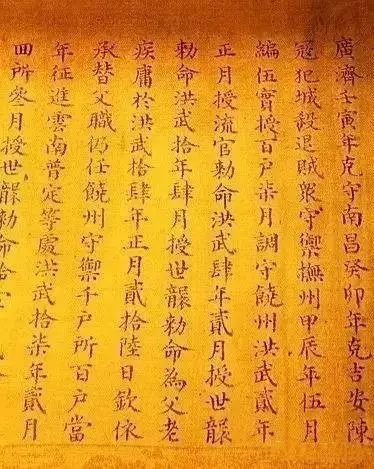 廣濟壬寅年克守南昌癸卯年克吉安陳
冦犯城殺退賊衆守禦撫州甲辰年伍月
編伍實授百戶柒月調守饒州洪武貳年
正月授流官勅命洪武肆年貳月授世襲
勅命洪武拾年肆月授世襲勅命為父老
疾庸於洪武拾肆年正月貳拾陸日欽依
承替父職仍任饒州守禦千戶所百戶當
年征進雲南普定等處洪武拾柒年貳月
回所叄月授世襲勅命拾